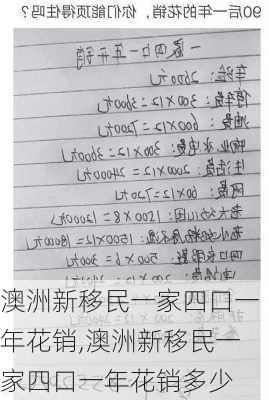 90后一年的花销，你们能顶得住吗？
一家四口一年开销
车险：2600元
停车费：300×12=3600元
油费：600×12=7200元
物业水电费：300×12=3600元
生活费：2000×12=24000元
网费：60×12=720元
老大幼儿园：1500×8=12000元
1500×12=18000元
500×6=3000元
澳洲新移民一家四口一
年花销,澳洲新移民一
家四口一年花销多少